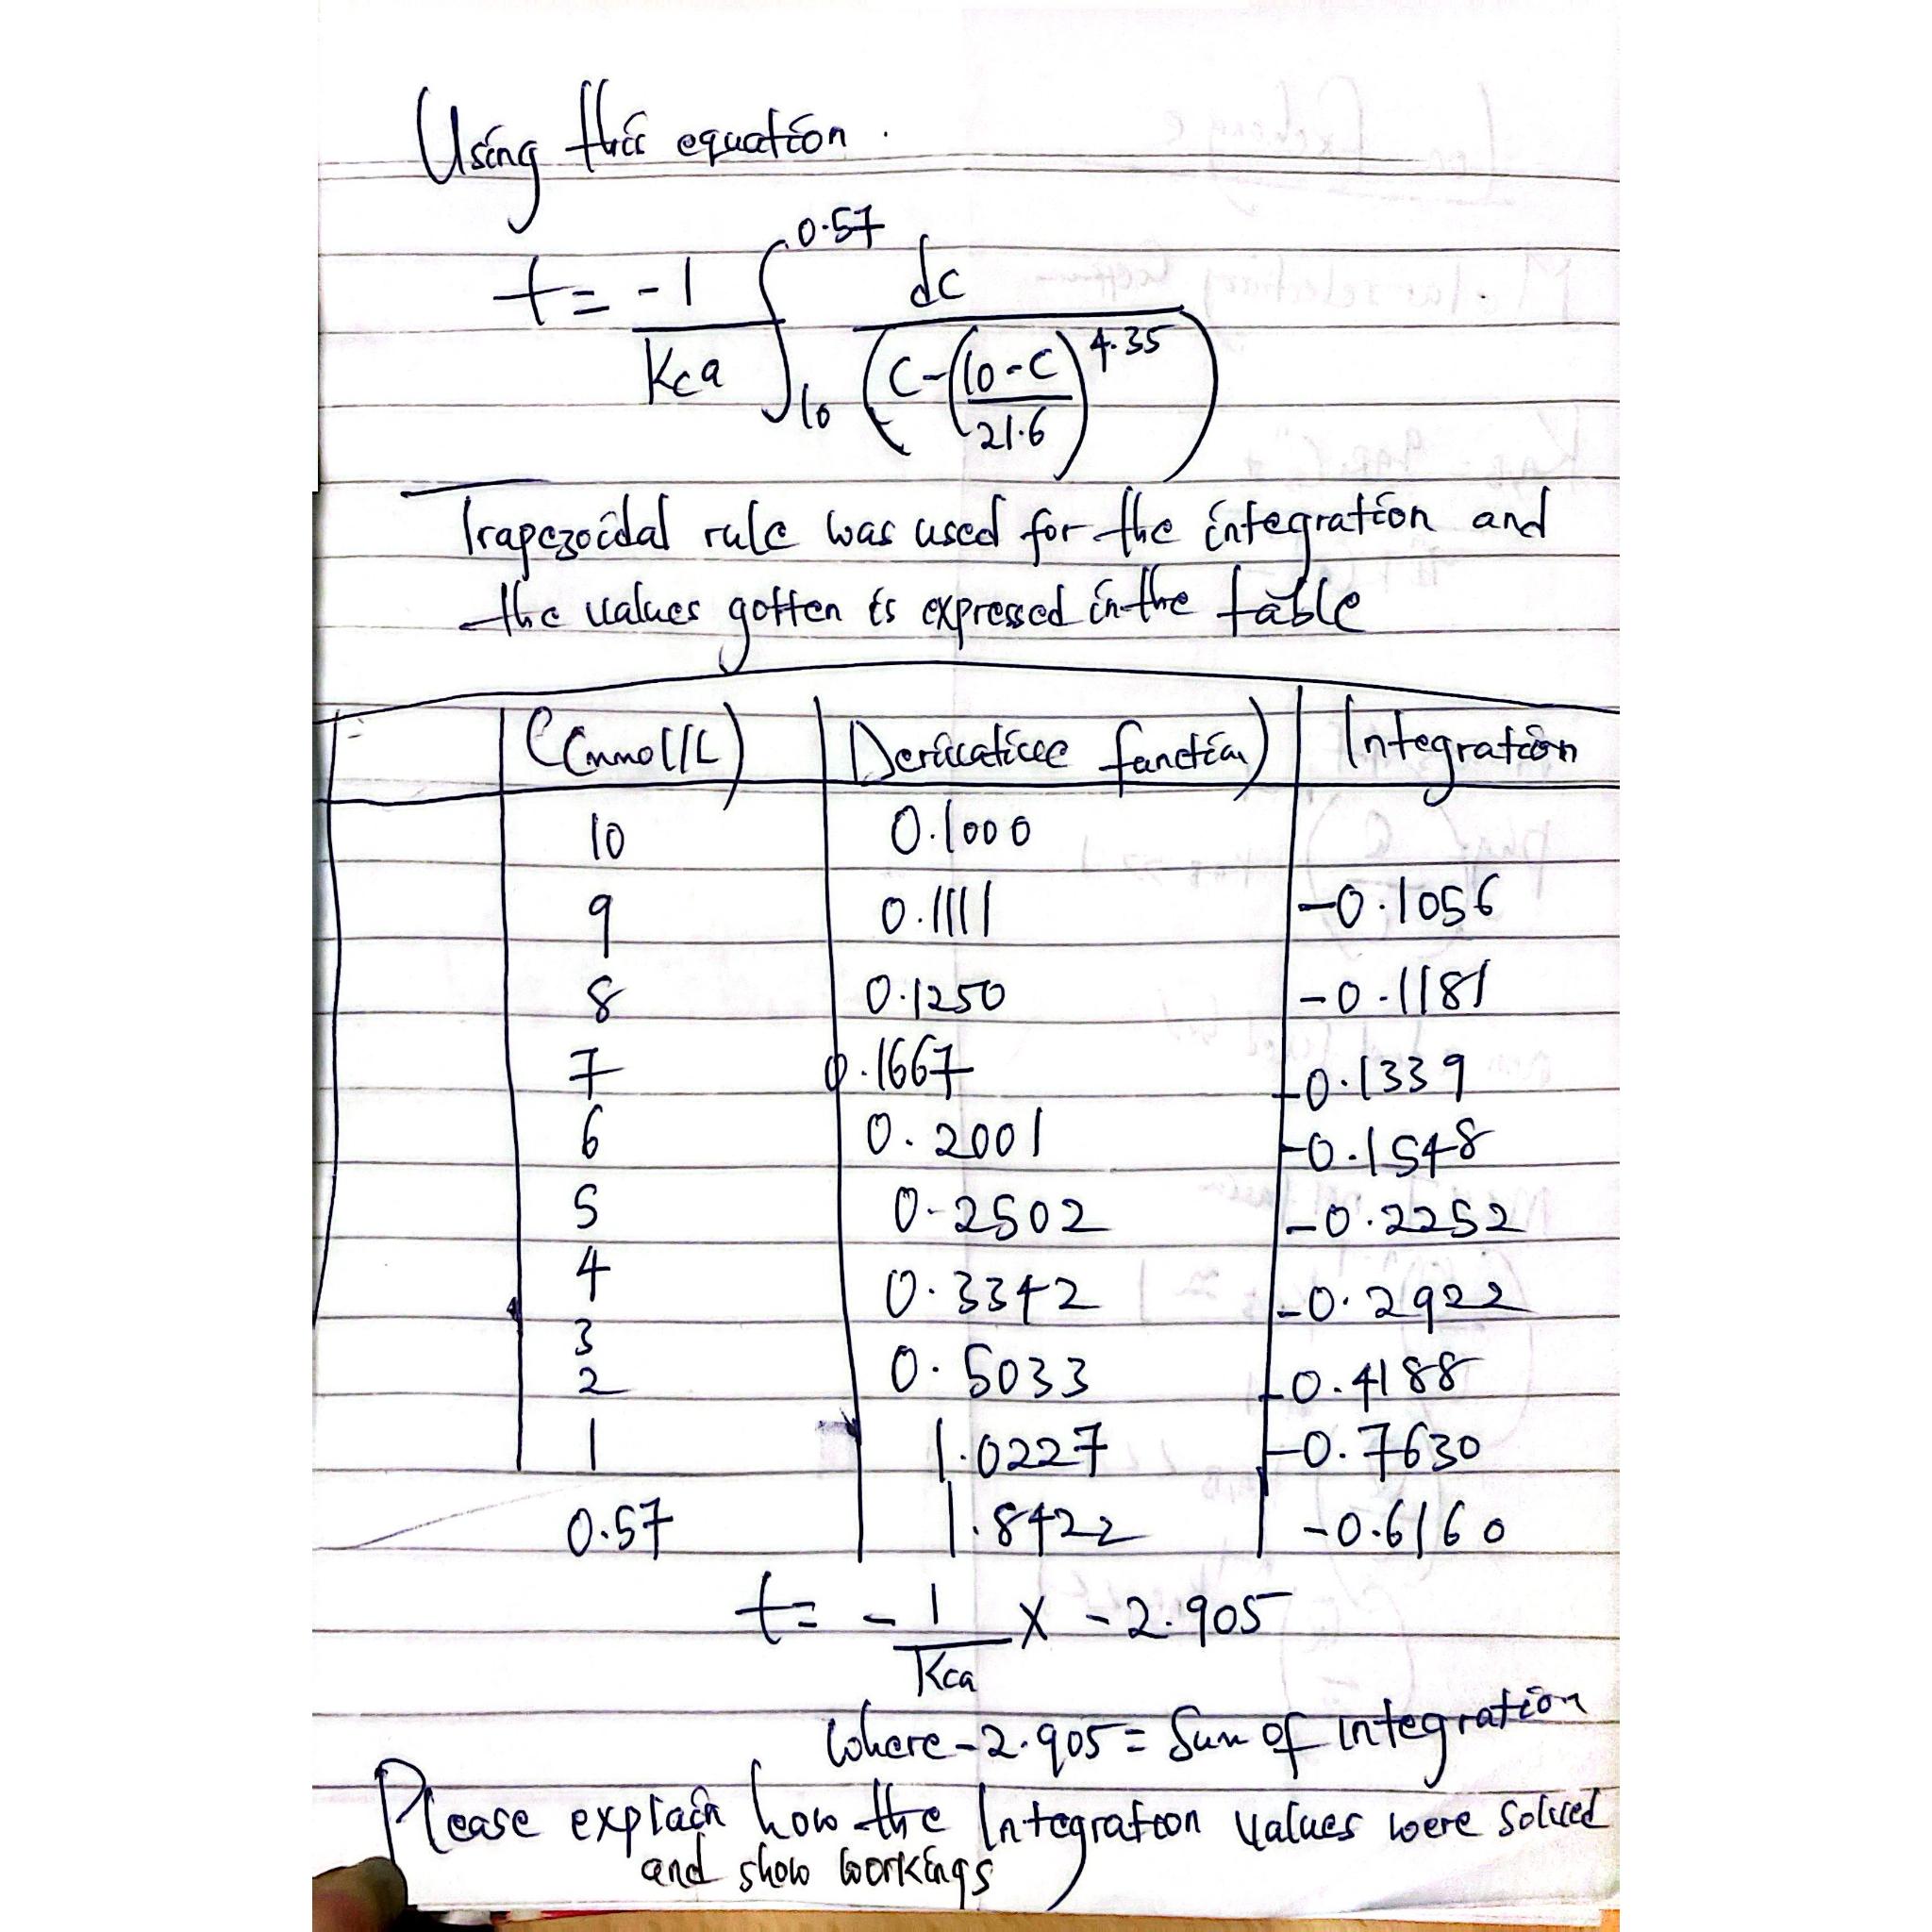 Using this equation.
t = -1/Kca ∫₁₀^0.57 dc/(C-((10-C)/21.6)^4.35)
Trapezoidal rule was used for the integration and
the values gotten is expressed in the table
C(mmol/L) Derivative function) Integration
10 0.1000
9 0.1111 -0.1056
8 0.1250 -0.1181
7 0.1667 -0.1339
6 0.2001 -0.1548
5 0.2502 -0.2252
4 0.3342 -0.2922
3
2 0.5033 -0.4188
1 1.0227 -0.7630
0.57 1.8422 -0.6160
t = -1/Kca × -2.905
where -2.905 = Sum of integration
Please explain how the Integration values were solved
and show workings